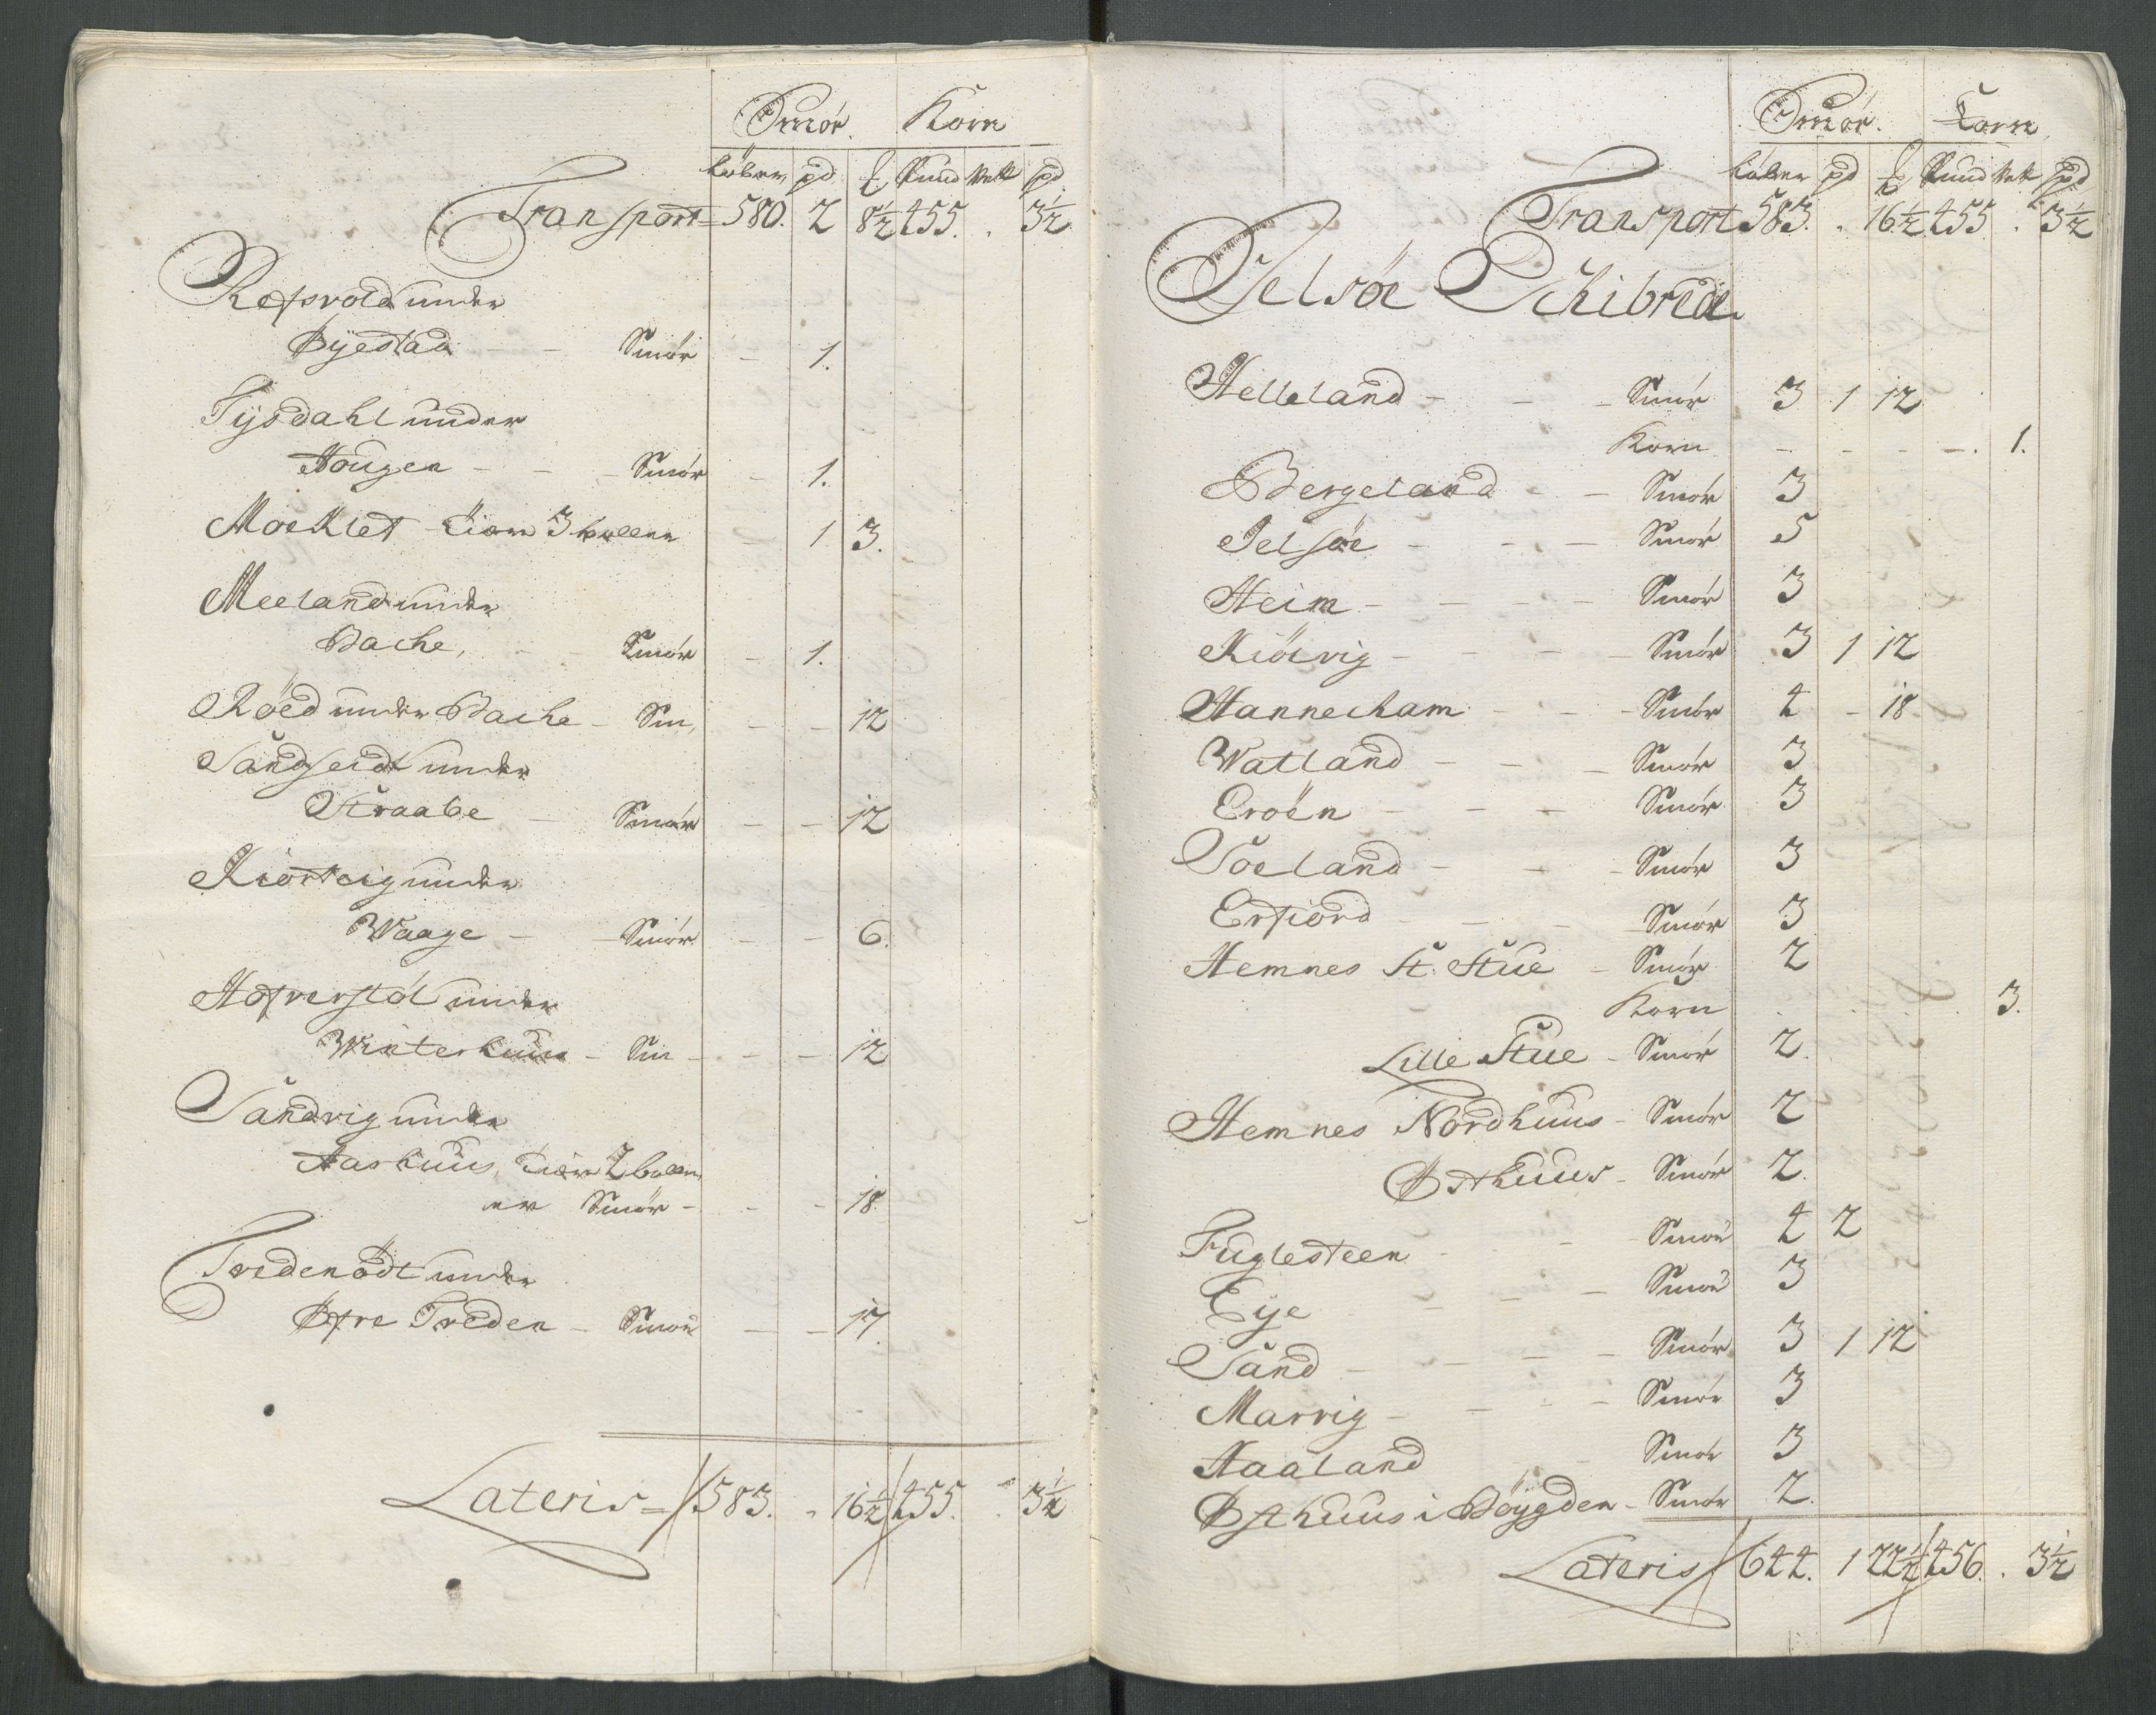 Smör. Korn
Löber pd ℔ Pund Vett pd
Transport = 580. 2 8½ 455. . 3½
Refsvold under
Byestad - - Smör - 1.
Tysdahl under
Hougen - - - Smör - 1.
Moeklet 3 - 1 3.
Meeland under
Bache, - - Smör - 1.
Röed under Bache - Sm, - - 12
Sandseidt under
Straabe - Smör - - 12
Kiörteig under
Waage - - Smör - - 6.
Hofverstöl under
Winterhuus - Sm - - - 12
Sandvig under
Aarhuus, 2
er Smör - - - 18
Tvedenödt under
Øfre Tveden - Smör - - 17.
Lateris = 583. . 16½ 455. . 3½
Smör. Korn
Löber pd ℔ Pund Vett pd
Transport 583. . 16½ 455 . 3½
Jelsöe Schibrede
Helleland - - - Smör 3 1 12
Korn - - - - . 1.
Bergeland - - Smör 3
Jelsöe - - - Smör 5
Heim - - - - Smör 3
Kiölvig - - - - Smör 3 1 12
Hanneham - - - Smör 4 - 18
Watland - - - Smör 3
Eroën - - - Smör 3
Soeland - - - Smör 3
Erfiord - - - Smör 3
Hemnes St. Stue - Smör 2
Korn . . . . . 3.
Lille Stue - Smör 2.
Hemnes Nordhuus - Smör 2
Østhuus - Smör 2.
Fuglesteen - - - Smör 4 2
Eije - - - Smör 3
Sand - - - - Smör 3 1 12
Marvig - - - - Smör 3
Haaland - Smör 3
Østhuus i Böygden - Smör 2.
Lateris 644. 1 22½ 456. . 3½